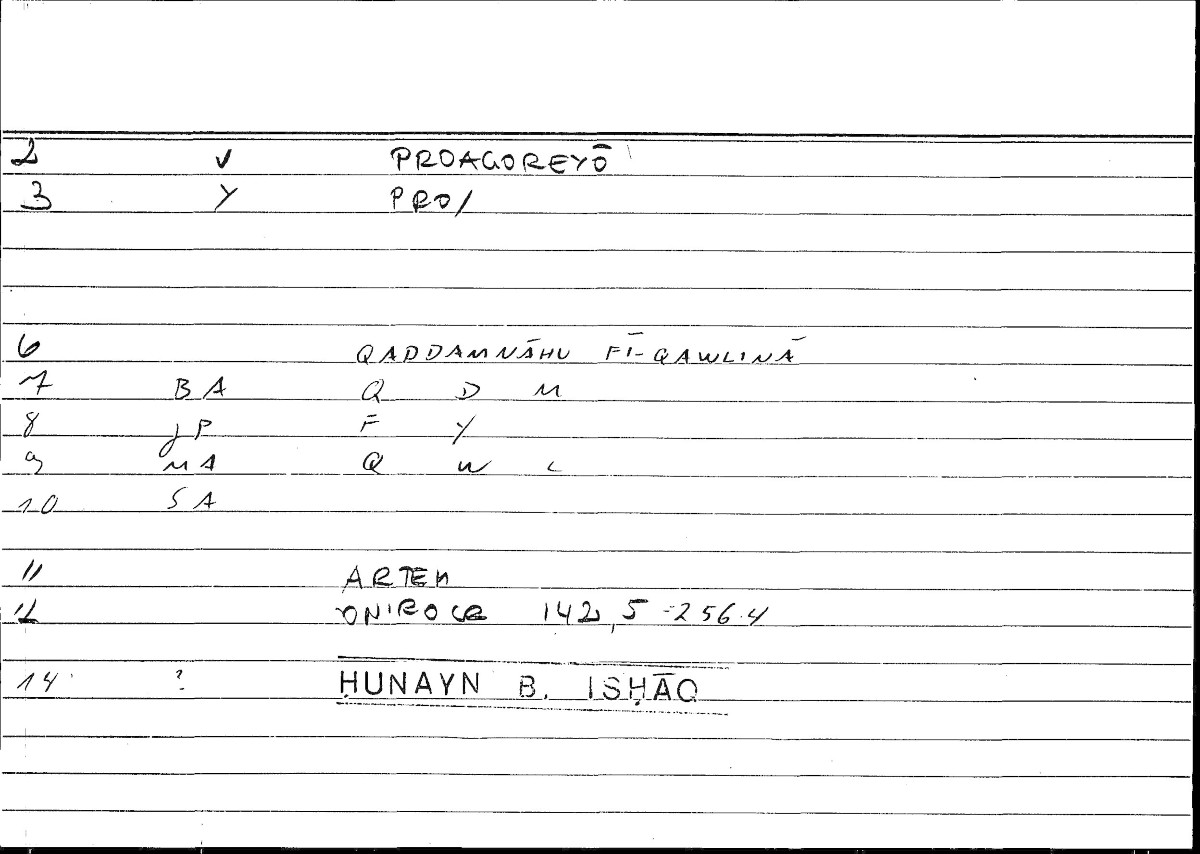 2 V PROAGOREYŌ
3 Y PRO/
6 QADDAMNĀHU FĪ-QAWLINĀ
7 BA Q D M
8 JP F Y
9 MA Q W L
10 SA
11 ARTEM
12 ONIROCR 142,5-256.4
14 ? ḤUNAYN B. ISḤĀQ